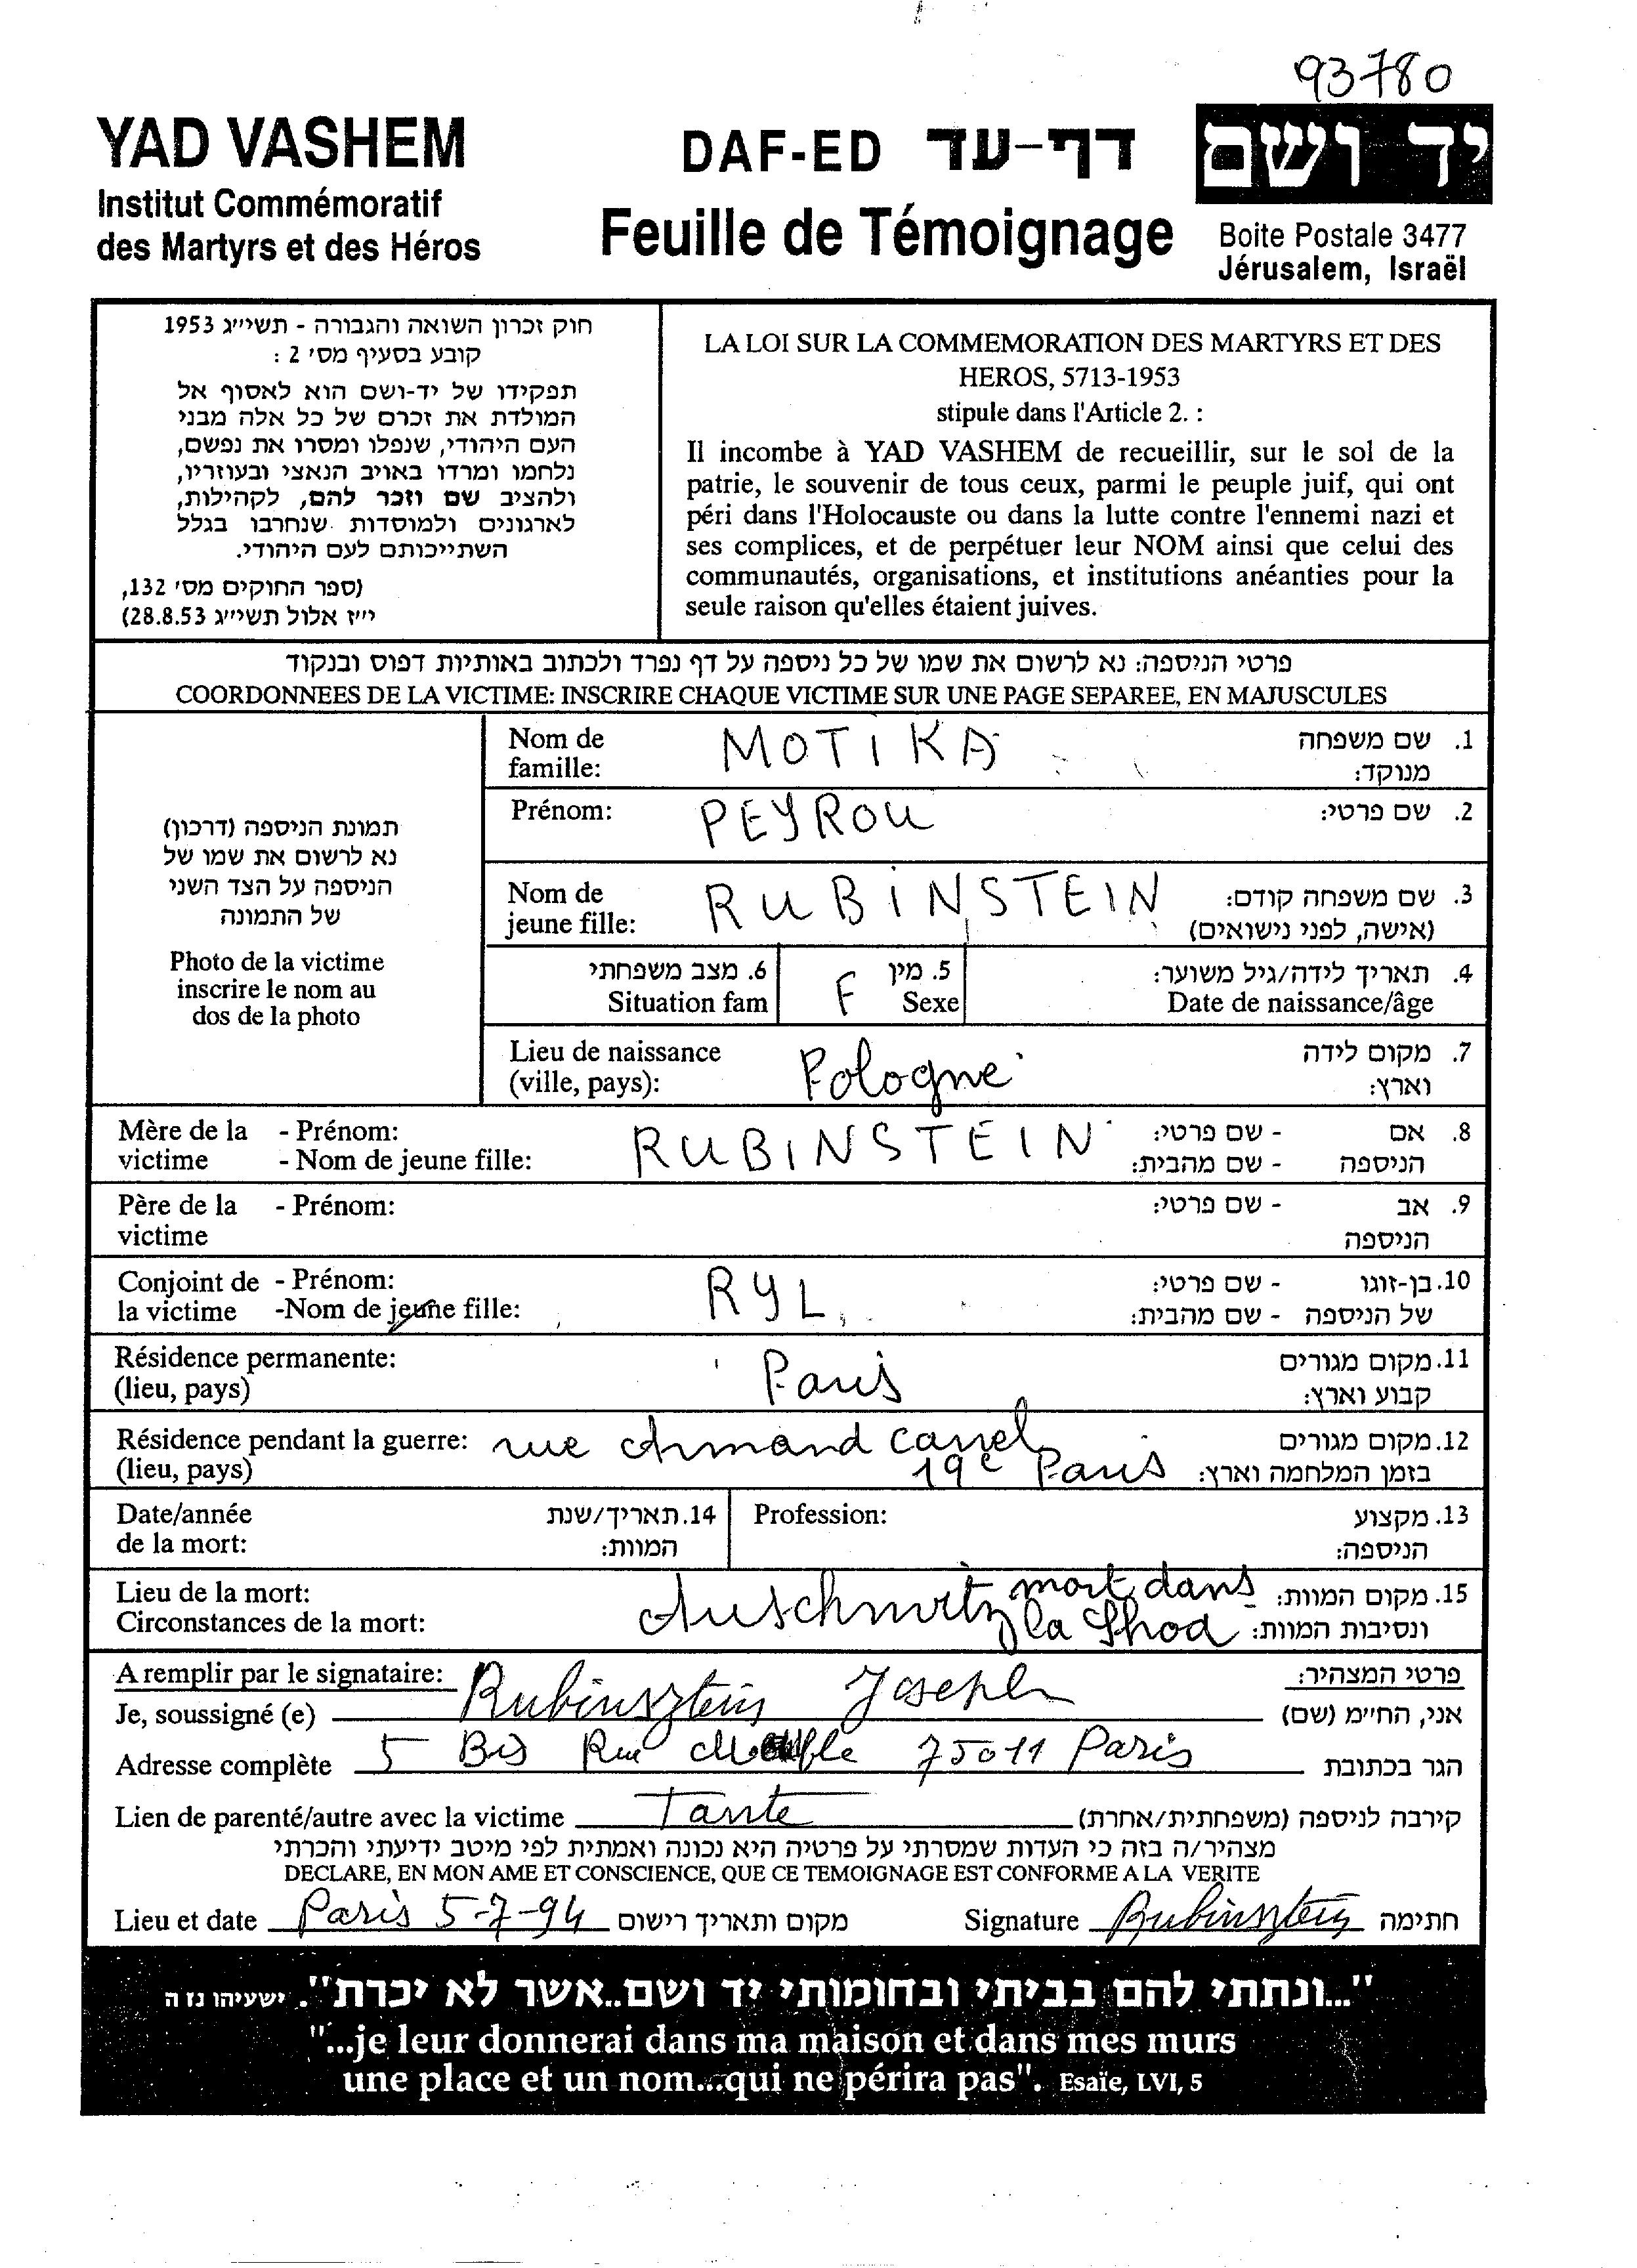 93780
YAD VASHEM
Institut Commémoratif
des Martyrs et des Héros
DAF-ED דף-עד
Feuille de Témoignage
יד ושם
Boite Postale 3477
Jérusalem, Israël
חוק זכרון השואה והגבורה - תשי״ג 1953
קובע בסעיף מס׳ 2 :
תפקידו של יד-ושם הוא לאסוף אל
המולדת את זכרם של כל אלה מבני
העם היהודי, שנפלו ומסרו את נפשם,
נלחמו ומרדו באויב הנאצי ובעוזריו,
ולהציב שם וזכר להם, לקהילות,
לארגונים ולמוסדות שנחרבו בגלל
השתייכותם לעם היהודי.
(ספר החוקים מס׳ 132,
י״ז אלול תשי״ג 28.8.53)
LA LOI SUR LA COMMEMORATION DES MARTYRS ET DES
HEROS, 5713-1953
stipule dans l'Article 2. :
Il incombe à YAD VASHEM de recueillir, sur le sol de la
patrie, le souvenir de tous ceux, parmi le peuple juif, qui ont
péri dans l'Holocauste ou dans la lutte contre l'ennemi nazi et
ses complices, et de perpétuer leur NOM ainsi que celui des
communautés, organisations, et institutions anéanties pour la
seule raison qu'elles étaient juives.
פרטי הניספה: נא לרשום את שמו של כל ניספה על דף נפרד ולכתוב באותיות דפוס ובנקוד
COORDONNEES DE LA VICTIME: INSCRIRE CHAQUE VICTIME SUR UNE PAGE SEPAREE, EN MAJUSCULES
תמונת הניספה (דרכון)
נא לרשום את שמו של
הניספה על הצד השני
של התמונה
Photo de la victime
inscrire le nom au
dos de la photo
Nom de MOTIKA 1. שם משפחה
famille: מנוקד:
Prénom: PEYROU 2. שם פרטי:
Nom de RUBINSTEIN 3. שם משפחה קודם:
jeune fille: (אישה, לפני נישואים)
6. מצב משפחתי 5. מין 4. תאריך לידה/גיל משוער:
Situation fam F Sexe Date de naissance/âge
Lieu de naissance Pologne 7. מקום לידה
(ville, pays): וארץ:
Mère de la - Prénom: RUBINSTEIN - שם פרטי: 8. אם
victime - Nom de jeune fille: - שם מהבית: הניספה
Père de la - Prénom: - שם פרטי: 9. אב
victime הניספה
Conjoint de - Prénom: RYL - שם פרטי: 10. בן-זוגו
la victime -Nom de jeune fille: - שם מהבית: של הניספה
Résidence permanente: Paris 11. מקום מגורים
(lieu, pays) קבוע וארץ:
Résidence pendant la guerre: rue Armand Carrel 12. מקום מגורים
(lieu, pays) 19e Paris בזמן המלחמה וארץ:
Date/année 14. תאריך/שנת Profession: 13. מקצוע
de la mort: המוות: הניספה:
Lieu de la mort: Auschwitz mort dans 15. מקום המוות:
Circonstances de la mort: la Shoa ונסיבות המוות:
A remplir par le signataire: פרטי המצהיר:
Je, soussigné (e) Rubinsztein Joseph אני, החי״מ (שם)
Adresse complète 5 Bis Rue 75011 Paris הגר בכתובת
Lien de parenté/autre avec la victime Tante קירבה לניספה (משפחתית/אחרת)
מצהיר/ה בזה כי העדות שמסרתי על פרטיה היא נכונה ואמתית לפי מיטב ידיעתי והכרתי
DECLARE, EN MON AME ET CONSCIENCE, QUE CE TEMOIGNAGE EST CONFORME A LA VERITE
Lieu et date Paris 5-7-94 מקום ותאריך רישום Signature Rubinsztein חתימה
"...ונתתי להם בביתי ובחומותי יד ושם..אשר לא יכרת". ישעיהו נו ה
"...je leur donnerai dans ma maison et dans mes murs
une place et un nom...qui ne périra pas". Esaïe, LVI, 5